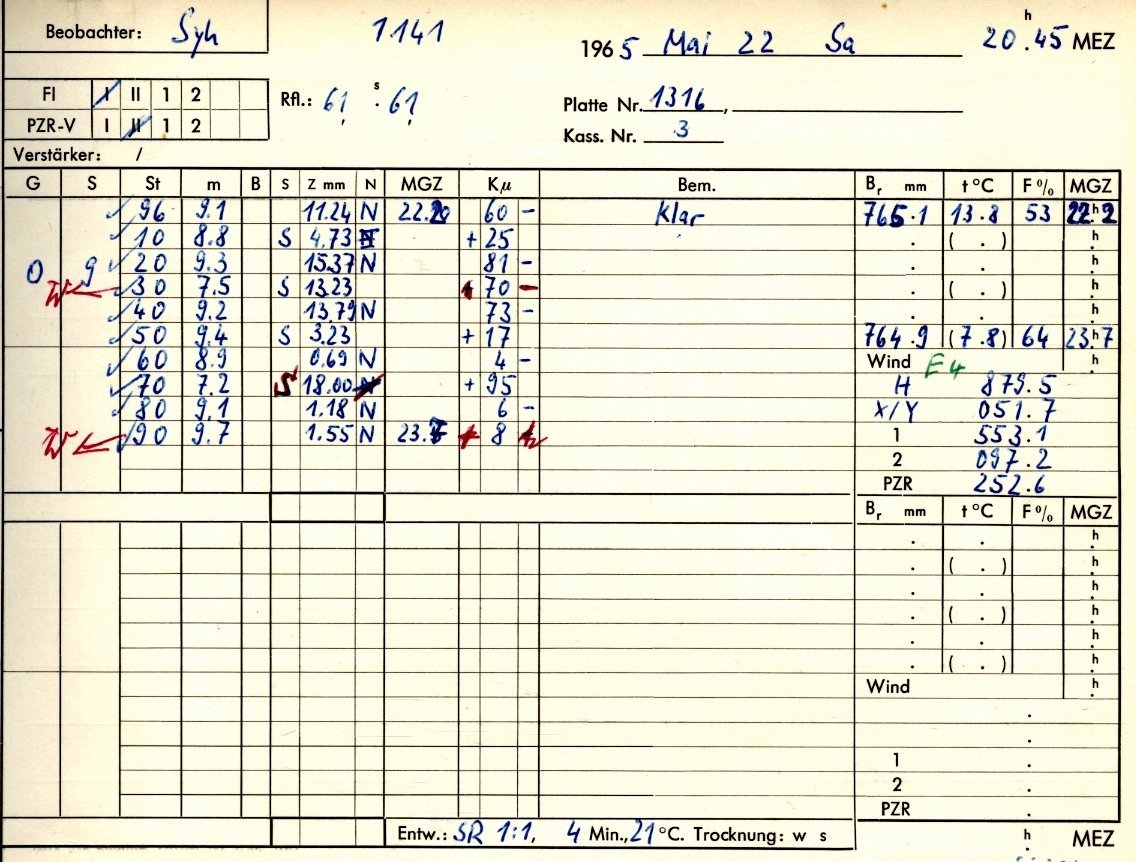 Beobachter: Syh 1141 1965 Mai 22 Sa 20.45 h MEZ
FI I II 1 2 Rfl.: 61 s . 61 Platte Nr. 1316,
PZR-V I II 1 2 Kass. Nr. 3
Verstärker: /
G S St m B S Z mm N MGZ Kμ Bem. Br mm t °C F % MGZ
96 9.1 11.24 N 22.20 60 - Klar 765.1 13.8 53 22.2 h
10 8.8 S 4.73 + 25 . ( . ) h
0 9 20 9.3 15.37 N 81 - . . h
30 7.5 S 13.23 70 - . ( . ) h
40 9.2 13.79 N 73 - . . h
50 9.4 S 3.23 + 17 764.9 (7.8) 64 23.7 h
60 8.9 0.69 N 4 - Wind E4 h
70 7.2 S 18.00 + 95 H 879.5
80 9.1 1.18 N 6 - X/Y 051.7
90 9.7 1.55 N 23.7 8 1 553.1
2 097.2
PZR 252.6
Br mm t °C F % MGZ
. . h
. ( . ) h
. . h
. ( . ) h
. . h
. ( . ) h
Wind h
.
.
1 .
2 .
PZR .
Entw.: SR 1:1, 4 Min., 21 °C. Trocknung: w s h . MEZ